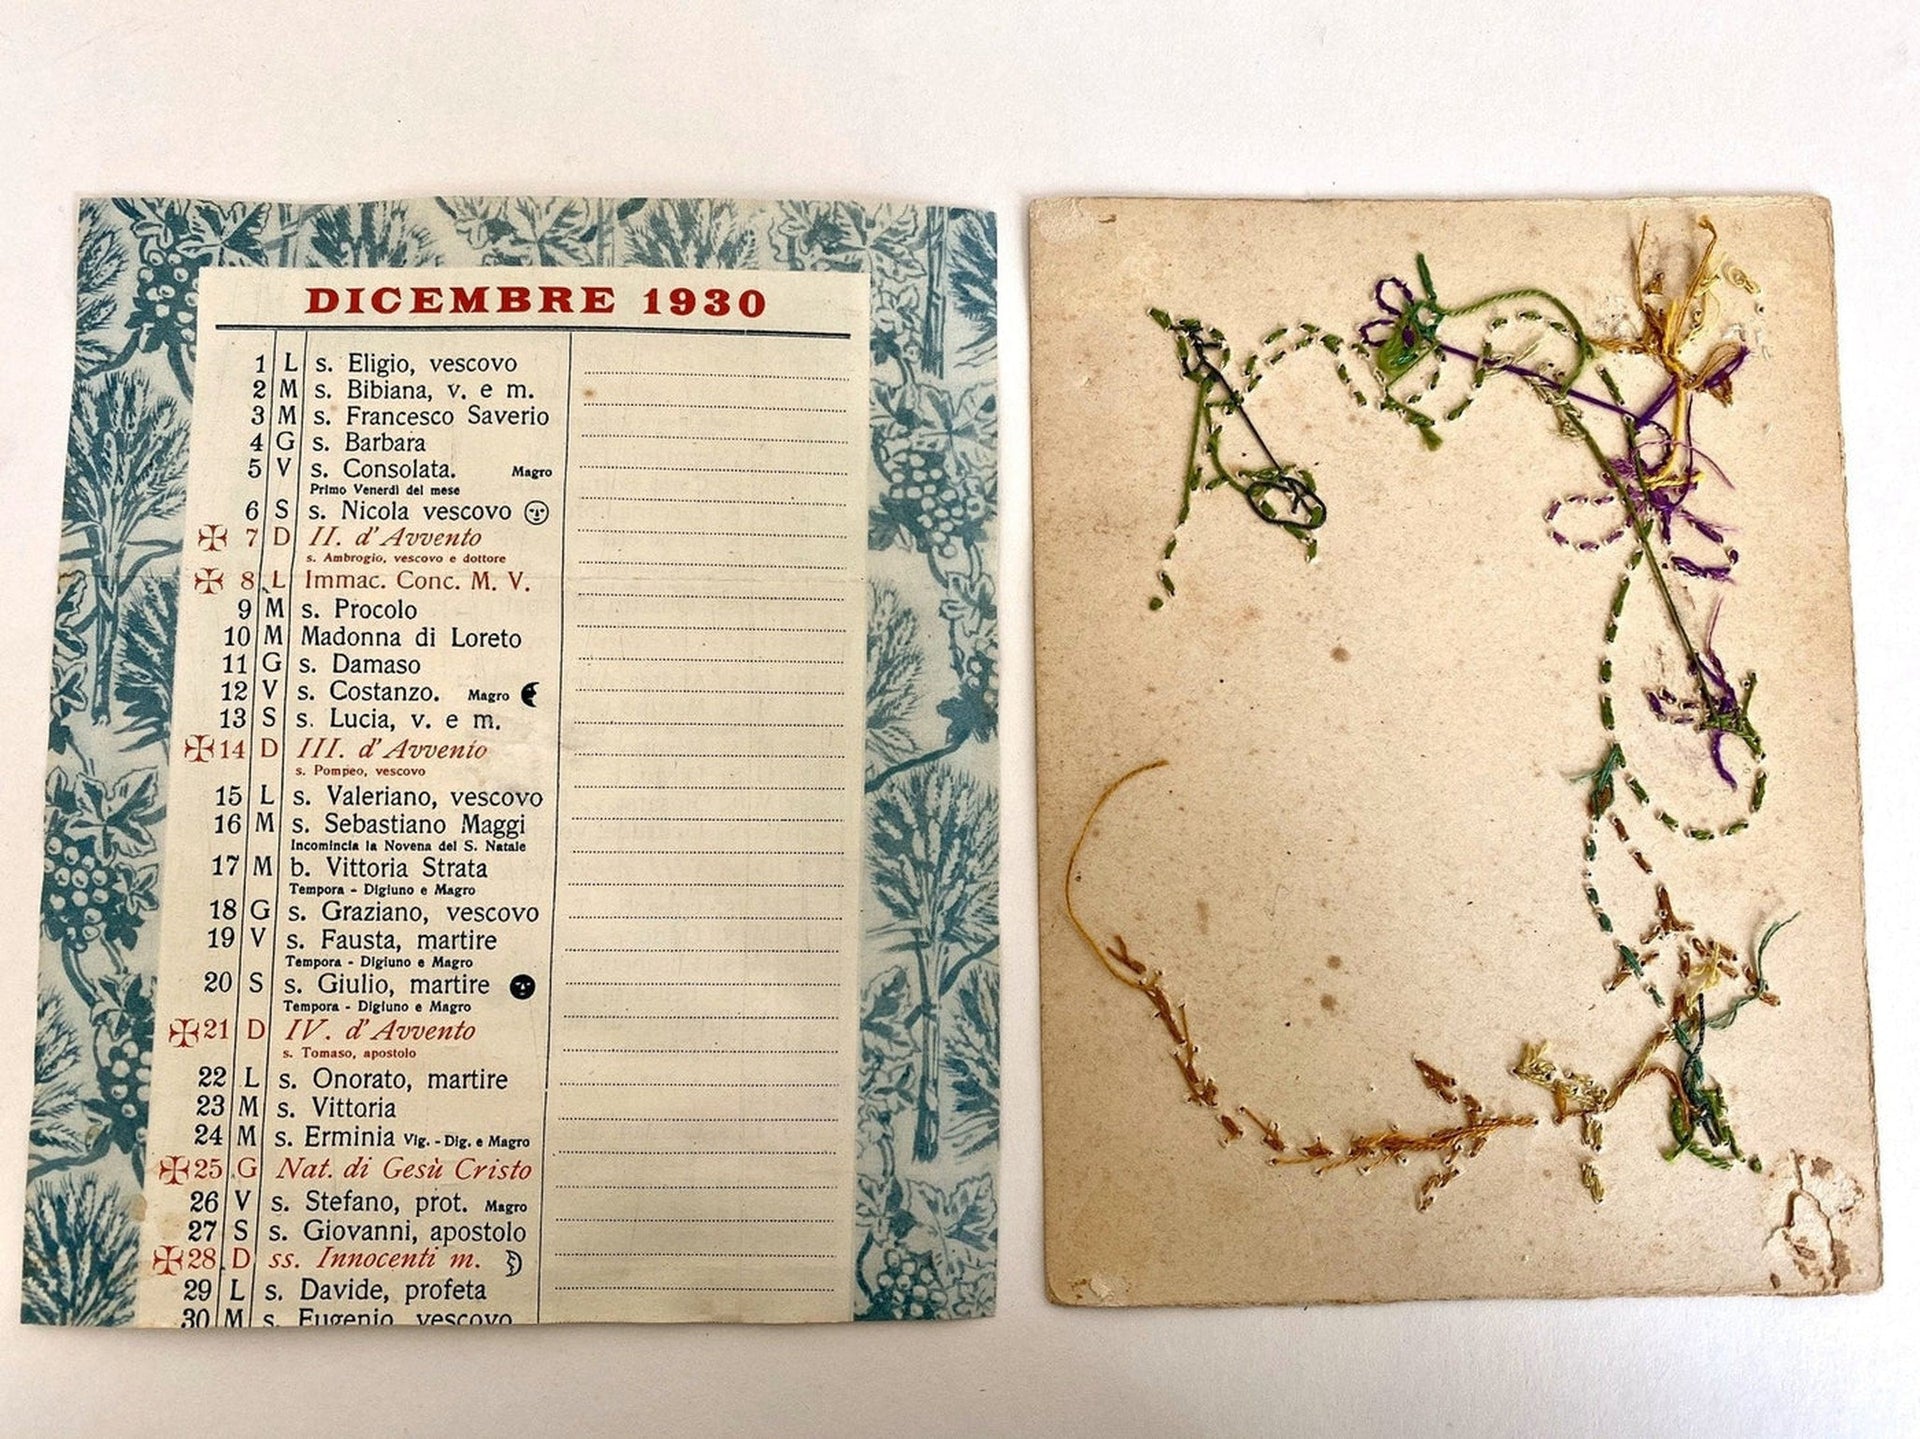 DICEMBRE 1930
1 L s. Eligio, vescovo
2 M s. Bibiana, v. e m.
3 M s. Francesco Saverio
4 G s. Barbara
5 V s. Consolata. Magro
Primo Venerdì del mese
6 S s. Nicola vescovo
7 D II. d'Avvento
s. Ambrogio, vescovo e dottore
8 L Immac. Conc. M. V.
9 M s. Procolo
10 M Madonna di Loreto
11 G s. Damaso
12 V s. Costanzo. Magro
13 S s. Lucia, v. e m.
14 D III. d'Avvento
s. Pompeo, vescovo
15 L s. Valeriano, vescovo
16 M s. Sebastiano Maggi
Incomincia la Novena del S. Natale
17 M b. Vittoria Strata
Tempora - Digiuno e Magro
18 G s. Graziano, vescovo
19 V s. Fausta, martire
Tempora - Digiuno e Magro
20 S s. Giulio, martire
Tempora - Digiuno e Magro
21 D IV. d'Avvento
s. Tomaso, apostolo
22 L s. Onorato, martire
23 M s. Vittoria
24 M s. Erminia Vig. - Dig. e Magro
25 G Nat. di Gesù Cristo
26 V s. Stefano, prot. Magro
27 S s. Giovanni, apostolo
28 D ss. Innocenti m.
29 L s. Davide, profeta
30 M s. Eugenio, vescovo